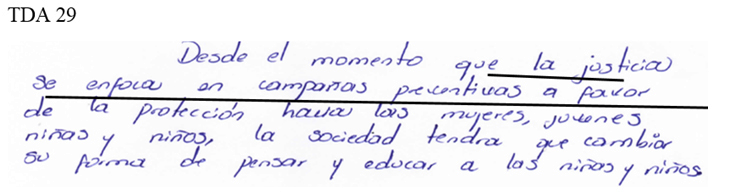 TDA 29
Desde el momento que la justicia
se enfoca en campañas preventivas a favor
de la protección hacia las mujeres, jovenes
niñas y niños, la sociedad tendra que cambiar
su forma de pensar y educar a las niñas y niños